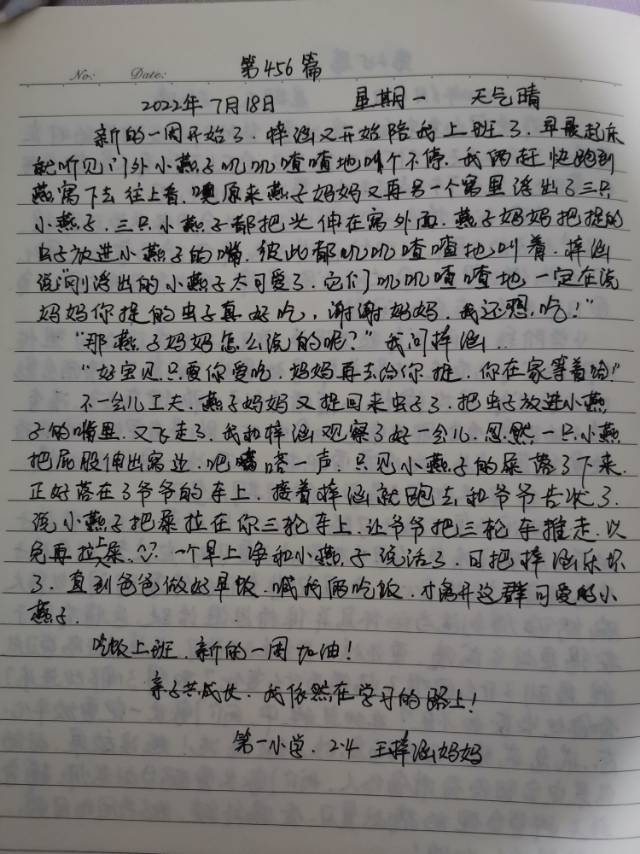 第456篇
No: Date:
2022年7月18日 星期一 天气晴
新的一周开始了.梓涵又开始陪我上班了.早晨起床
就听见门外小燕子叽叽喳喳地叫个不停.我俩赶快跑到
燕窝下去往上看.噢原来燕子妈妈又再另一个窝里浮出了三只
小燕子.三只小燕子都把头伸在窝外面.燕子妈妈把捉的
虫子放进小燕子的嘴.彼此都叽叽喳喳地叫着.梓涵
说"刚浮出的小燕子太可爱了.它们叽叽喳喳地一定在说
妈妈你捉的虫子真好吃,谢谢妈妈.我还想吃!"
"那燕子妈妈怎么说的呢?"我问梓涵..
"好宝贝.只要你爱吃.妈妈再去给你捉.你在家等着哈!"
不一会儿工夫.燕子妈妈又捉回来虫子了.把虫子放进小燕
子的嘴里.又飞走了.我和梓涵观察了好一会儿.忽然一只小燕
把屁股伸出窝边.吧嗒一声.只见小燕子的屎落了下来.
正好落在了爷爷的车上.接着梓涵就跑去和爷爷告状了.
说小燕子把屎拉在你三轮车上.让爷爷把三轮车推走.以
免再拉上屎.一个早上净和小燕子说话了.可把梓涵乐坏
了.直到爸爸做好早饭.喊我俩吃饭.才离开这群可爱的小
燕子.
吃饭上班.新的一周加油!
亲子共成长.我依然在学习的路上!
第一小学.2.4 王梓涵妈妈